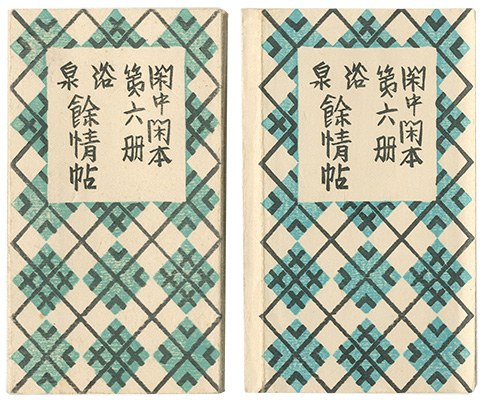 閑中閑本
第六册
浴泉
餘情帖
閑中閑本
第六册
浴泉
餘情帖